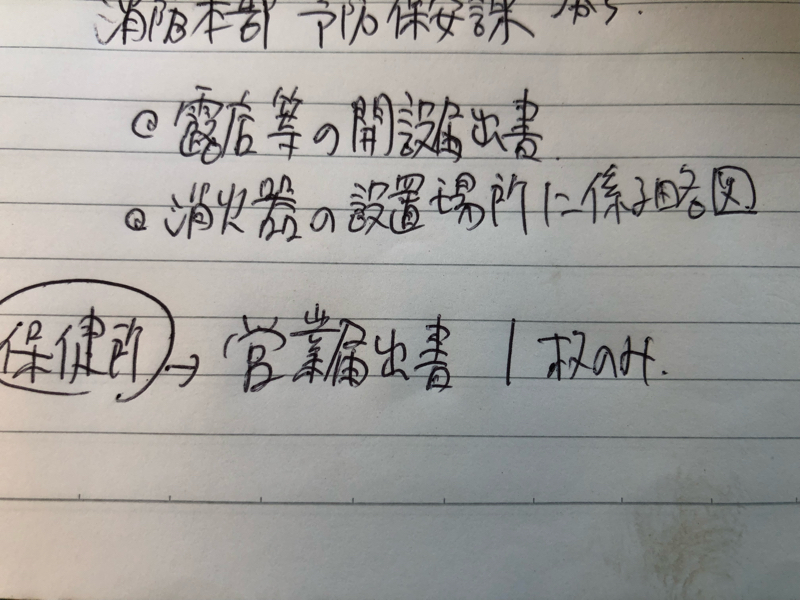 消防本部 予防保安課 から.
◎ 露店等の開設届出書.
◎ 消火器の設置場所に係る略図
保健所 → 営業届出書 1枚のみ.